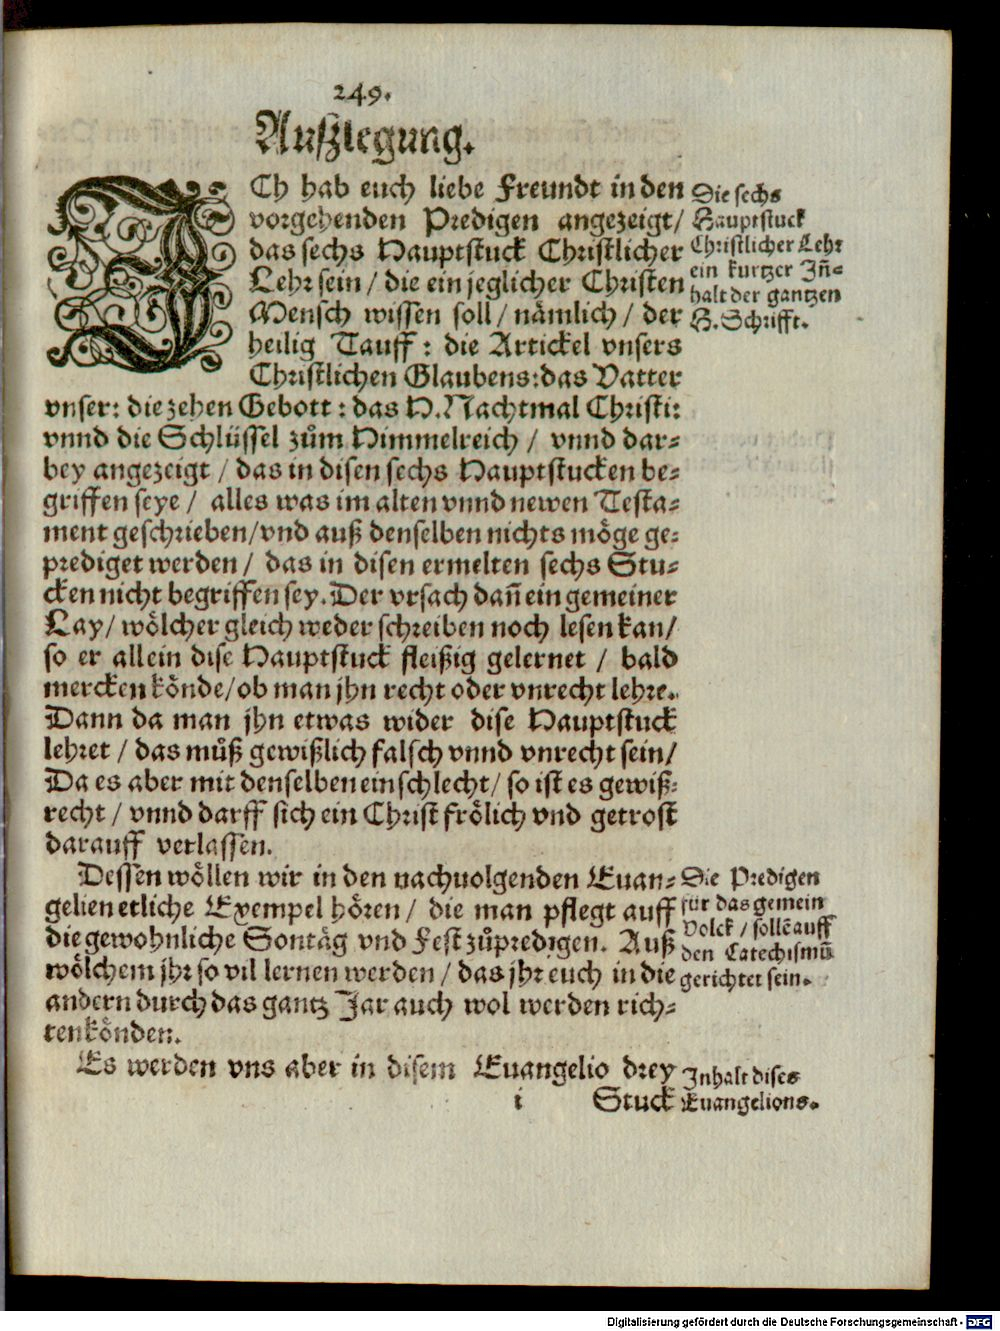 249.
Außlegung.
ICh hab euch liebe Freundt in den
vorgehenden Predigen angezeigt/
das sechs Hauptstuck Christlicher
Lehr sein / die ein jeglicher Christen
Mensch wissen soll / nämlich / der
heilig Tauff : die Artickel vnsers
Christlichen Glaubens: das Vatter
vnser: die zehen Gebott : das H. Nachtmal Christi:
vnnd die Schlüssel zům Himmelreich / vnnd dar-
bey angezeigt / das in disen sechs Hauptstucken be-
griffen seye / alles was im alten vnnd newen Testa-
ment geschrieben/vnd auß denselben nichts möge ge-
prediget werden / das in disen ermelten sechs Stu-
cken nicht begriffen sey. Der vrsach dañ ein gemeiner
Lay/ wölcher gleich weder schreiben noch lesen kan/
so er allein dise Hauptstuck fleißig gelernet / bald
mercken könde/ob man jhn recht oder vnrecht lehre.
Dann da man jhn etwas wider dise Hauptstuck
lehret / das můß gewißlich falsch vnnd vnrecht sein/
Da es aber mit denselben einschlecht/ so ist es gewiß-
recht / vnnd darff sich ein Christ frölich vnd getrost
darauff verlassen.
Dessen wöllen wir in den nachuolgenden Euan-
gelien etliche Exempel hören / die man pflegt auff
die gewohnliche Sontäg vnd Fest zůpredigen. Auß
wölchem jhr so vil lernen werden / das jhr euch in die
andern durch das gantz Jar auch wol werden rich-
ten könden.
Es werden vns aber in disem Euangelio drey
i Stuck
Die sechs
Hauptstuck
Christlicher Lehr
ein kurtzer Jñ-
halt der gantzen
H. Schrifft.
Die Predigen
für das gemein
Volck / sollē auff
den Catechismū
gerichtet sein.
Inhalt dises
Euangelions.
Digitalisierung gefördert durch die Deutsche Forschungsgemeinschaft - DFG